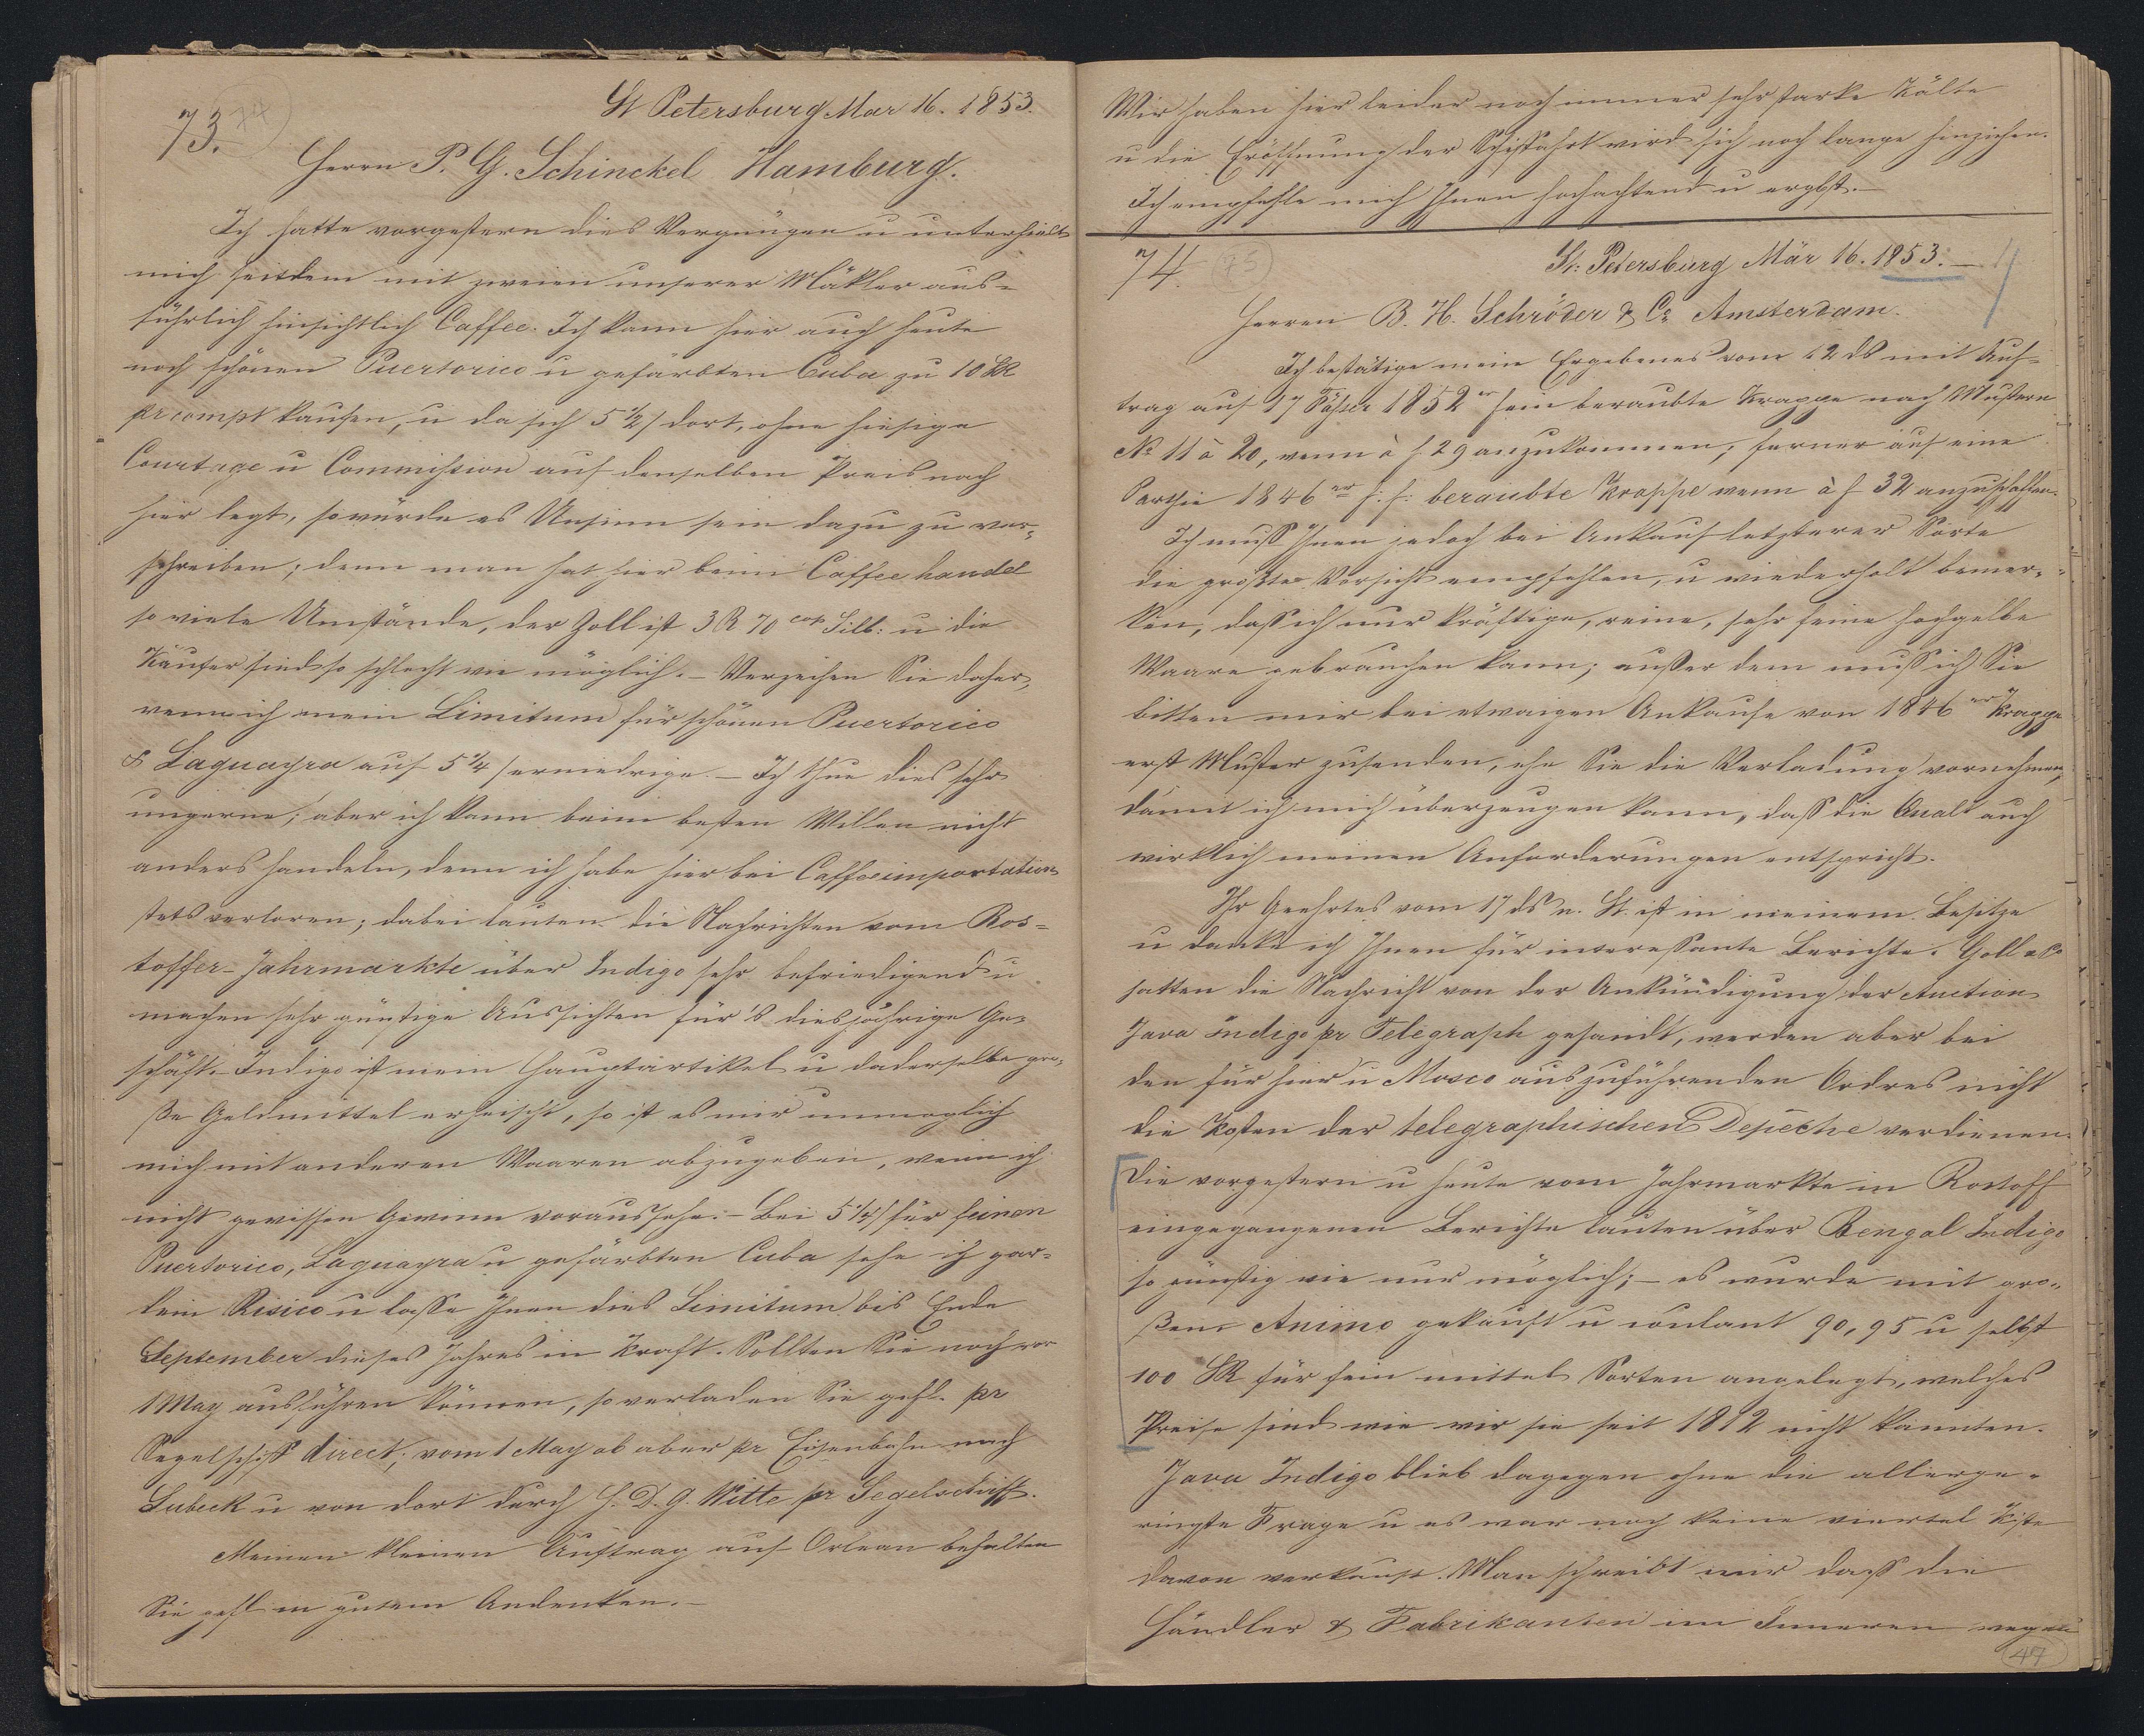 73. 74
St Petersburg Mar 16. 1853.
Herrn P. G. Schinckel Hamburg.
Ich hatte vorgestern dies Vergnügen u unterhielt
mich seitdem mit zweien unserer Mäkler aus=
führlich hinsichtlich Caffee. Ich kann hier auch heute
noch schönen Puertorico u gefärbten Cuba zu 10 SR
pr compt kaufen, u da sich 5 ½ / dort, ohne hiesige
Courtage u Commission auf denselben Preis nach
hier legt, so würde es Unsinn sein dazu zu ver=
schreiben; denn man hat hier beim Caffeehandel
so viele Umstände, der Zoll ist 3 R 70 cop Silb: u die
Käufer sind so schlecht wie möglich. – Verzeihen Sie daher,
wenn ich mein Limitum für schönen Puertorico
& Laguayra auf 5 ¼ / erniedrige. – Ich thue dies sehr
ungerne; aber ich kann beim besten Willen nicht
anders handeln, denn ich habe hier bei Caffeeimportation
stets verloren; dabei lauten die Nachrichten vom Ros=
toffer-Jahrmarkte über Indigo sehr befriedigend u
machen sehr günstige Aussichten für's diesjährige Ge=
schäft. Indigo ist mein Hauptartikel u da derselbe gro=
ße Geldmittel erheischt, so ist es mir unmöglich
mich mit anderen Waaren abzugeben, wenn ich
nicht gewissen Gewinn voraussehe. – Bei 5 ¼ / für feinen
Puertorico, Laguayra u gefärbten Cuba sehe ich gar=
kein Risico u lasse Ihnen dies Limitum bis Ende
September dieses Jahres in Kraft. Sollten Sie noch vor
1 May ausführen können, so verladen Sie gefl. pr
Segelschiff direct; vom 1 May ab aber pr Eisenbahn nach
Lubeck u von dort durch H. D. G. Witte pr Segelschiff.
Meinen kleinen Auftrag auf Orlean behalten
Sie gefl in gutem Andenken. –
Wir haben hier leider noch immer sehr starke Kälte
u die Eröffnung der Schiffahrt wird sich noch lange hinziehen.
Ich empfehle mich Ihnen hochachtend u ergbst. –
74. 75
St: Petersburg Mär 16. 1853. –
Herren B. H. Schröder & Co Amsterdam.
Ich bestätige mein Ergebenes vom 12 ds mit Auf=
trag auf 17 Fässer 1852er fein beraubte Krappe nach Mustern
No 11 à 20, wenn à f 29 anzukommen; ferner auf eine
Parthie 1846er f: f: beraubte Krappe wenn à f 32 anzuschaffen.
Ich muss Ihnen jedoch bei Ankauf letzterer Sorte
die größte Vorsicht empfehlen, u wiederholt bemer=
ken, dass ich nur kräftige, reine, sehr feine hochgelbe
Waare gebrauchen kann; ausser dem muss ich Sie
bitten mir bei etwaigem Ankaufe von 1846er Krappe
erst Muster zusenden, ehe Sie die Verladung vornehmen,
damit ich mich überzeugen kann, dass die Qualt auch
wirklich meinen Anforderungen entspricht.
Ihr Geehrtes vom 17 ds n. St. ist in meinem Besitze
u danke ich Ihnen für interessante Berichte. Goll & Co
hatten die Nachricht von der Ankündigung der Auction
Java Indigo pr Telegraph gesandt, werden aber bei
den für hier u Mosco auszuführenden Ordres nicht
die Kosten der telegraphischen Depéche verdienen.
Die vorgestern u heute vom Jahrmarkte in Rostoff
eingegangenen Berichte lauten über Bengal Indigo
so günstig wie nur möglich; – es wurde mit gro=
ßem Animo gekauft u coulant 90, 95 u selbst
100 SR für fein mittel Sorten angelegt, welches
Preise sind wie wir sie seit 1812 nicht kannten.
Java Indigo blieb dagegen ohne die allerge=
ringste Frage u es war noch keine viertel Kiste
davon verkauft. Man schreibt mir dass die
Händler & Fabrikanten im Inneren wegen
47